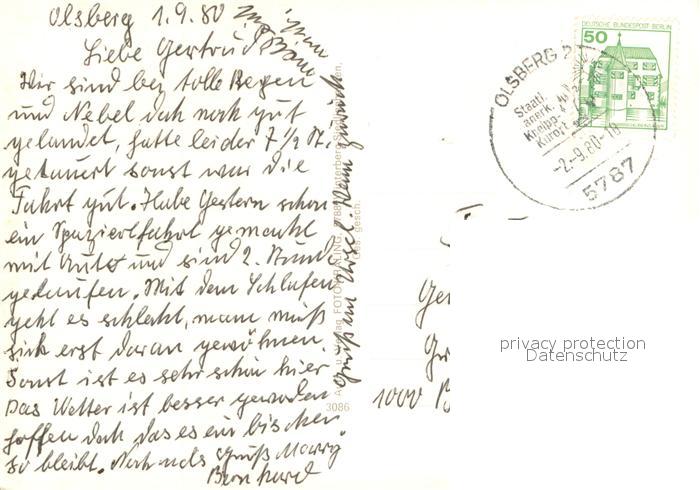 Olsberg 1.9.80
Liebe Gertrud
Wir sind bei tolle Regen
und Nebel doch noch gut
gelandet, hatte leider 7 1/2 St.
gedauert sonst war die
Fahrt gut. Habe Gestern schon
ein Spazierfahrt gemacht
mit Auto und sind 2. Stunde
gelaufen. Mit dem Schlafen
geht es schlecht, man muß
sich erst daran gewöhnen
Sonst ist es sehr schön hier
Das Wetter ist besser geworden
hoffen doch das es ein bischen
so bleibt. Nochmals Gruß
Bernhard
3086
DEUTSCHE BUNDESPOST BERLIN
50
OLSBERG 2
Staatl.
anerk.
Kneipp-
Kurort
-2.-9.80-18
5787
Ge
Gr
1000 B
privacy protection
Datenschutz